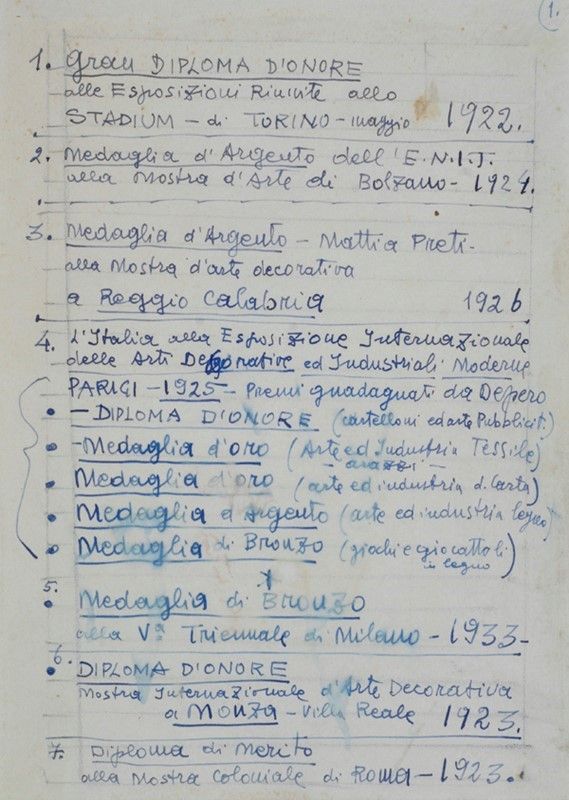 1.
1. Gran DIPLOMA D'ONORE
alle Esposizioni Riunite allo
STADIUM - di TORINO - maggio 1922.
2. Medaglia d'Argento dell'E.N.I.T.
alla Mostra d'Arte di Bolzano - 1924.
3. Medaglia d'Argento - Mattia Preti -
alla Mostra d'arte decorativa
a Reggio Calabria 1926
4. L'Italia alla Esposizione Internazionale
delle Arti Decorative ed Industriali Moderne
PARIGI - 1925 - Premi guadagnati da Depero
• - DIPLOMA D'ONORE (cartelloni ed arte Pubblicit.)
• - Medaglia d'oro (Arte ed Industria Tessile)
- arazzi -
• Medaglia d'oro (arte ed industria d. Carta)
• Medaglia d'Argento (arte ed industria legno)
• Medaglia di Bronzo (giochi e giocattoli
in legno)
5.
• Medaglia di Bronzo
alla Vª Triennale di Milano - 1933 -
6.
• DIPLOMA D'ONORE
Mostra Internazionale d'Arte Decorativa
a MONZA - Villa Reale 1923.
7. Diploma di merito
alla Mostra Coloniale di Roma - 1923.